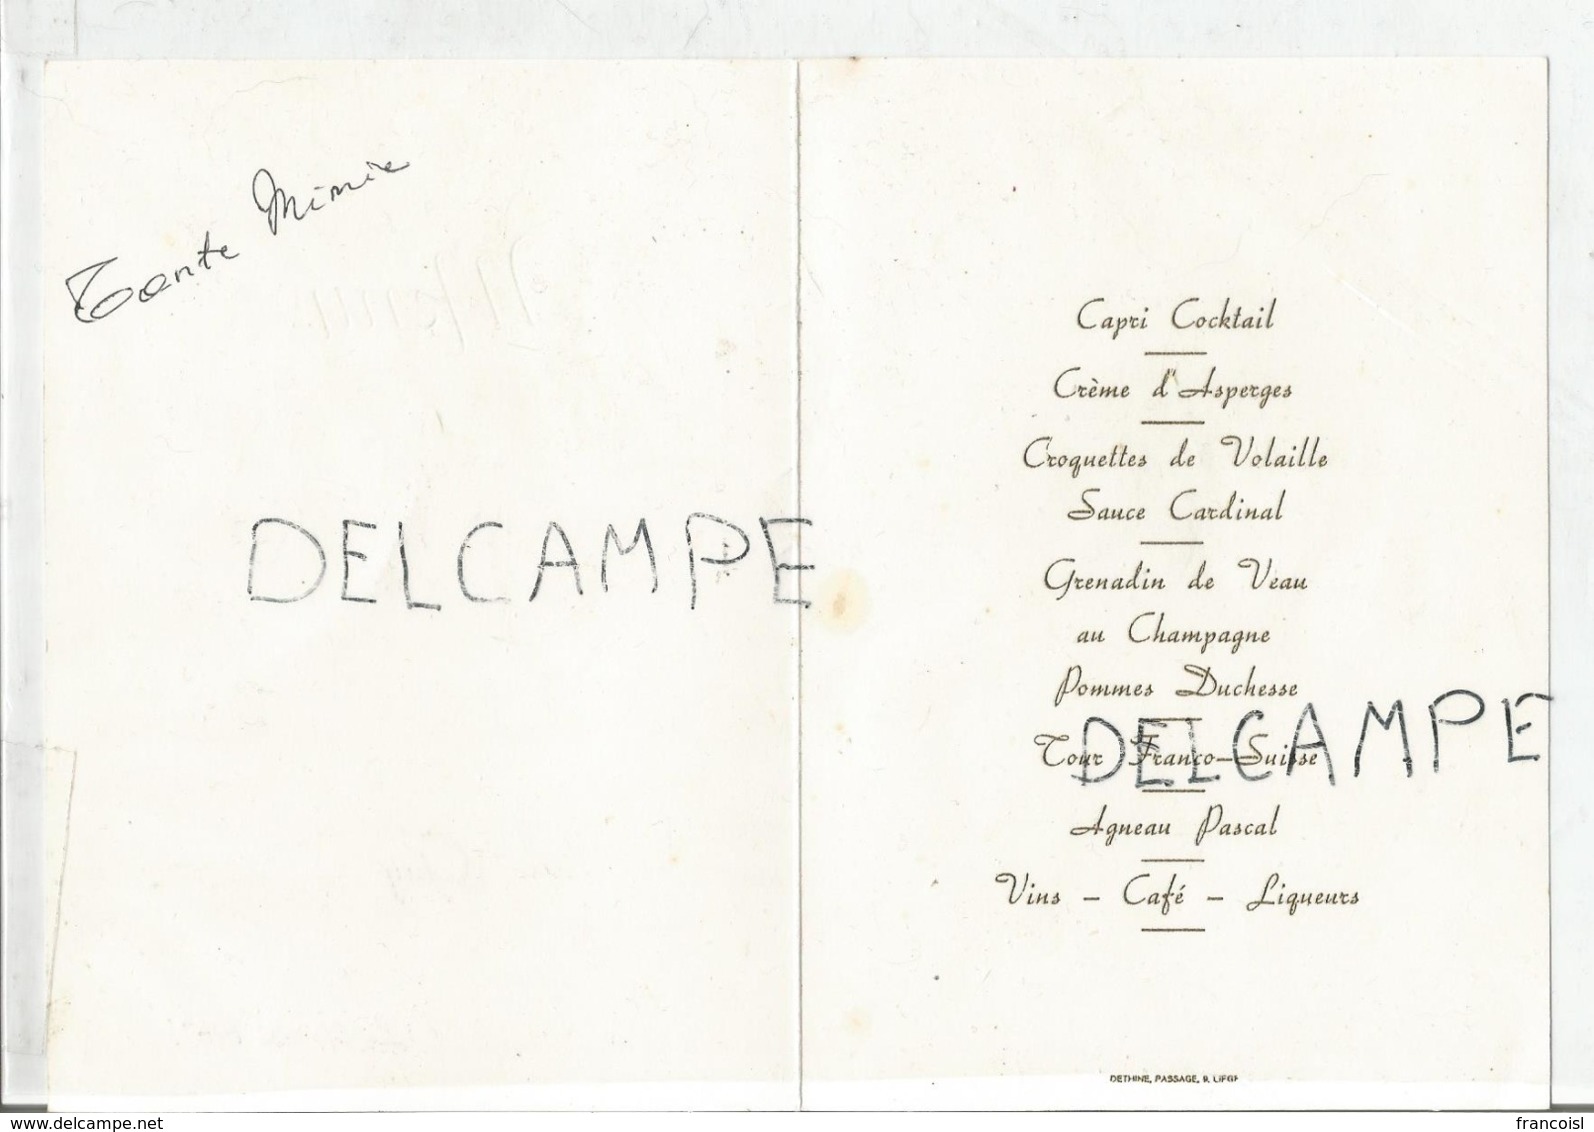 Tante Mimie
Menu
DELCAMPE
Capri Cocktail
Crème d'Asperges
Croquettes de Volaille
Sauce Cardinal
Grenadin de Veau
au Champagne
Pommes Duchesse
Tour Franco-Suisse
DELCAMPE
Agneau Pascal
Vins - Café - Liqueurs
DETHINE, PASSAGE, 9, LIEGE
www.delcampe.net
francoisl